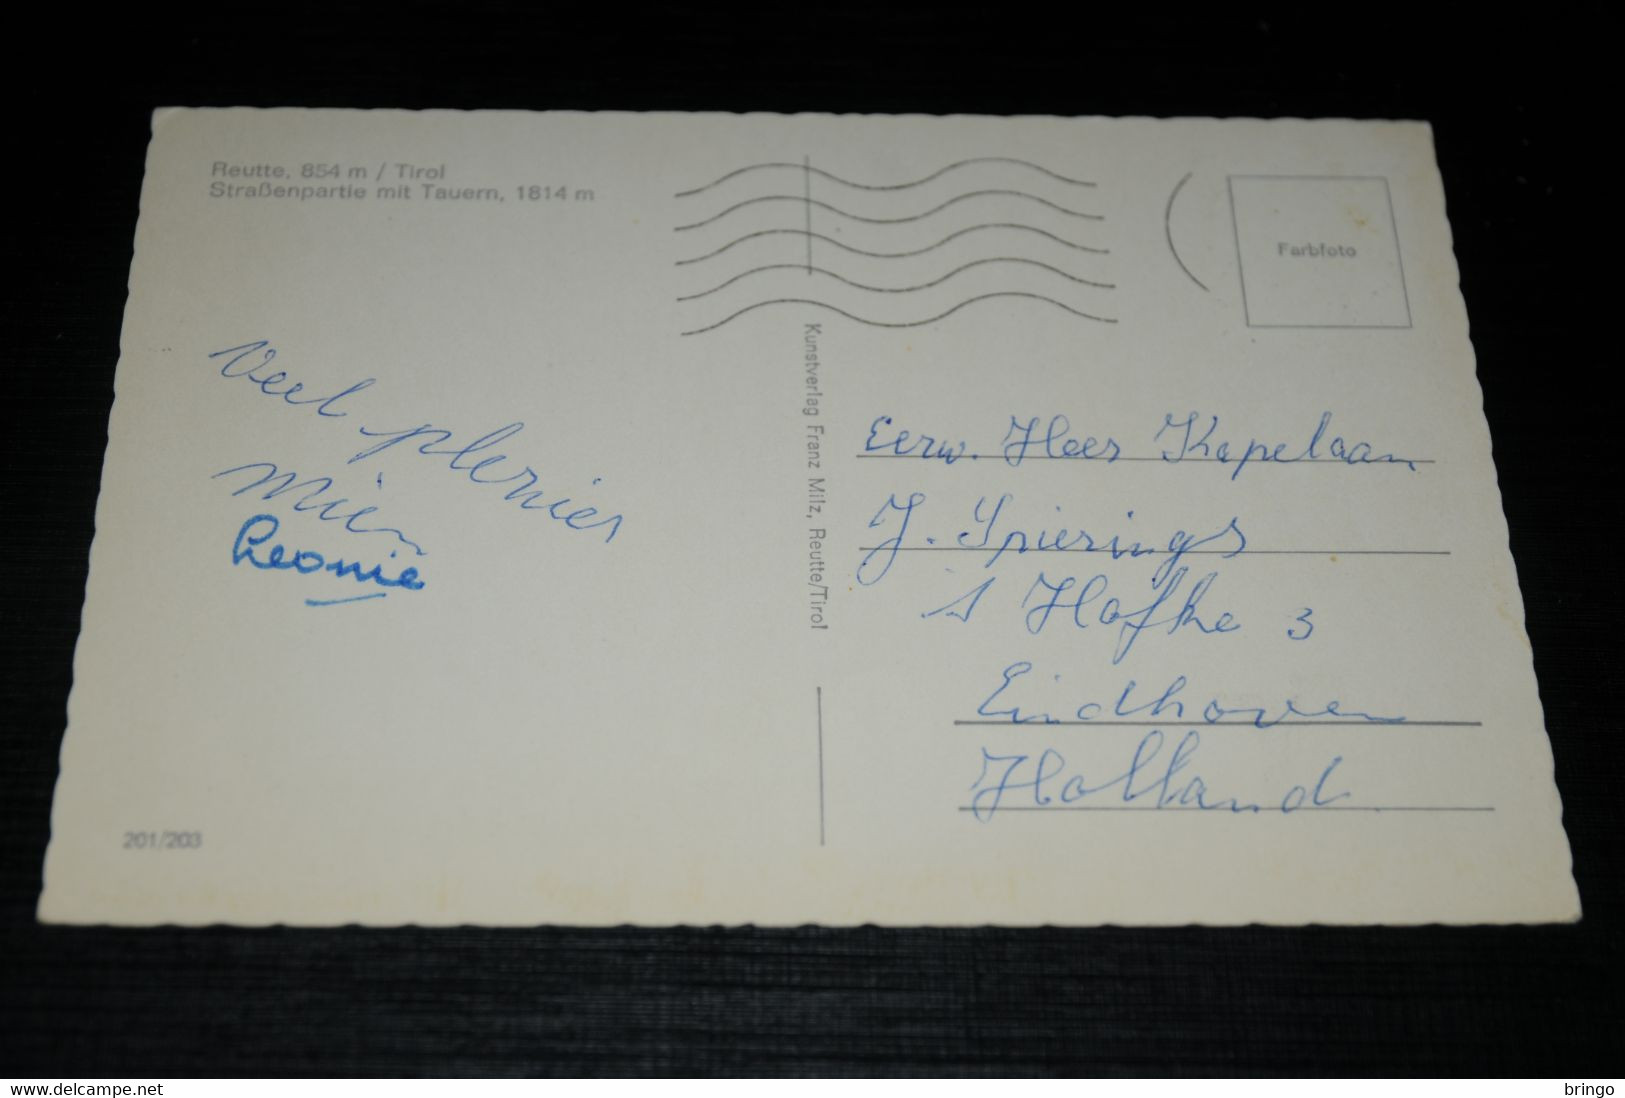 Reutte, 854 m / Tirol
Straßenpartie mit Tauern, 1814 m
Farbfoto
Veel plezier
Mien
Leonie
Kunstverlag Franz Milz, Reutte/Tirol
Eerw. Heer Kapelaan
J. Spierings
't Hofke 3
Eindhoven
Holland
201/203
www.delcampe.net
bringo